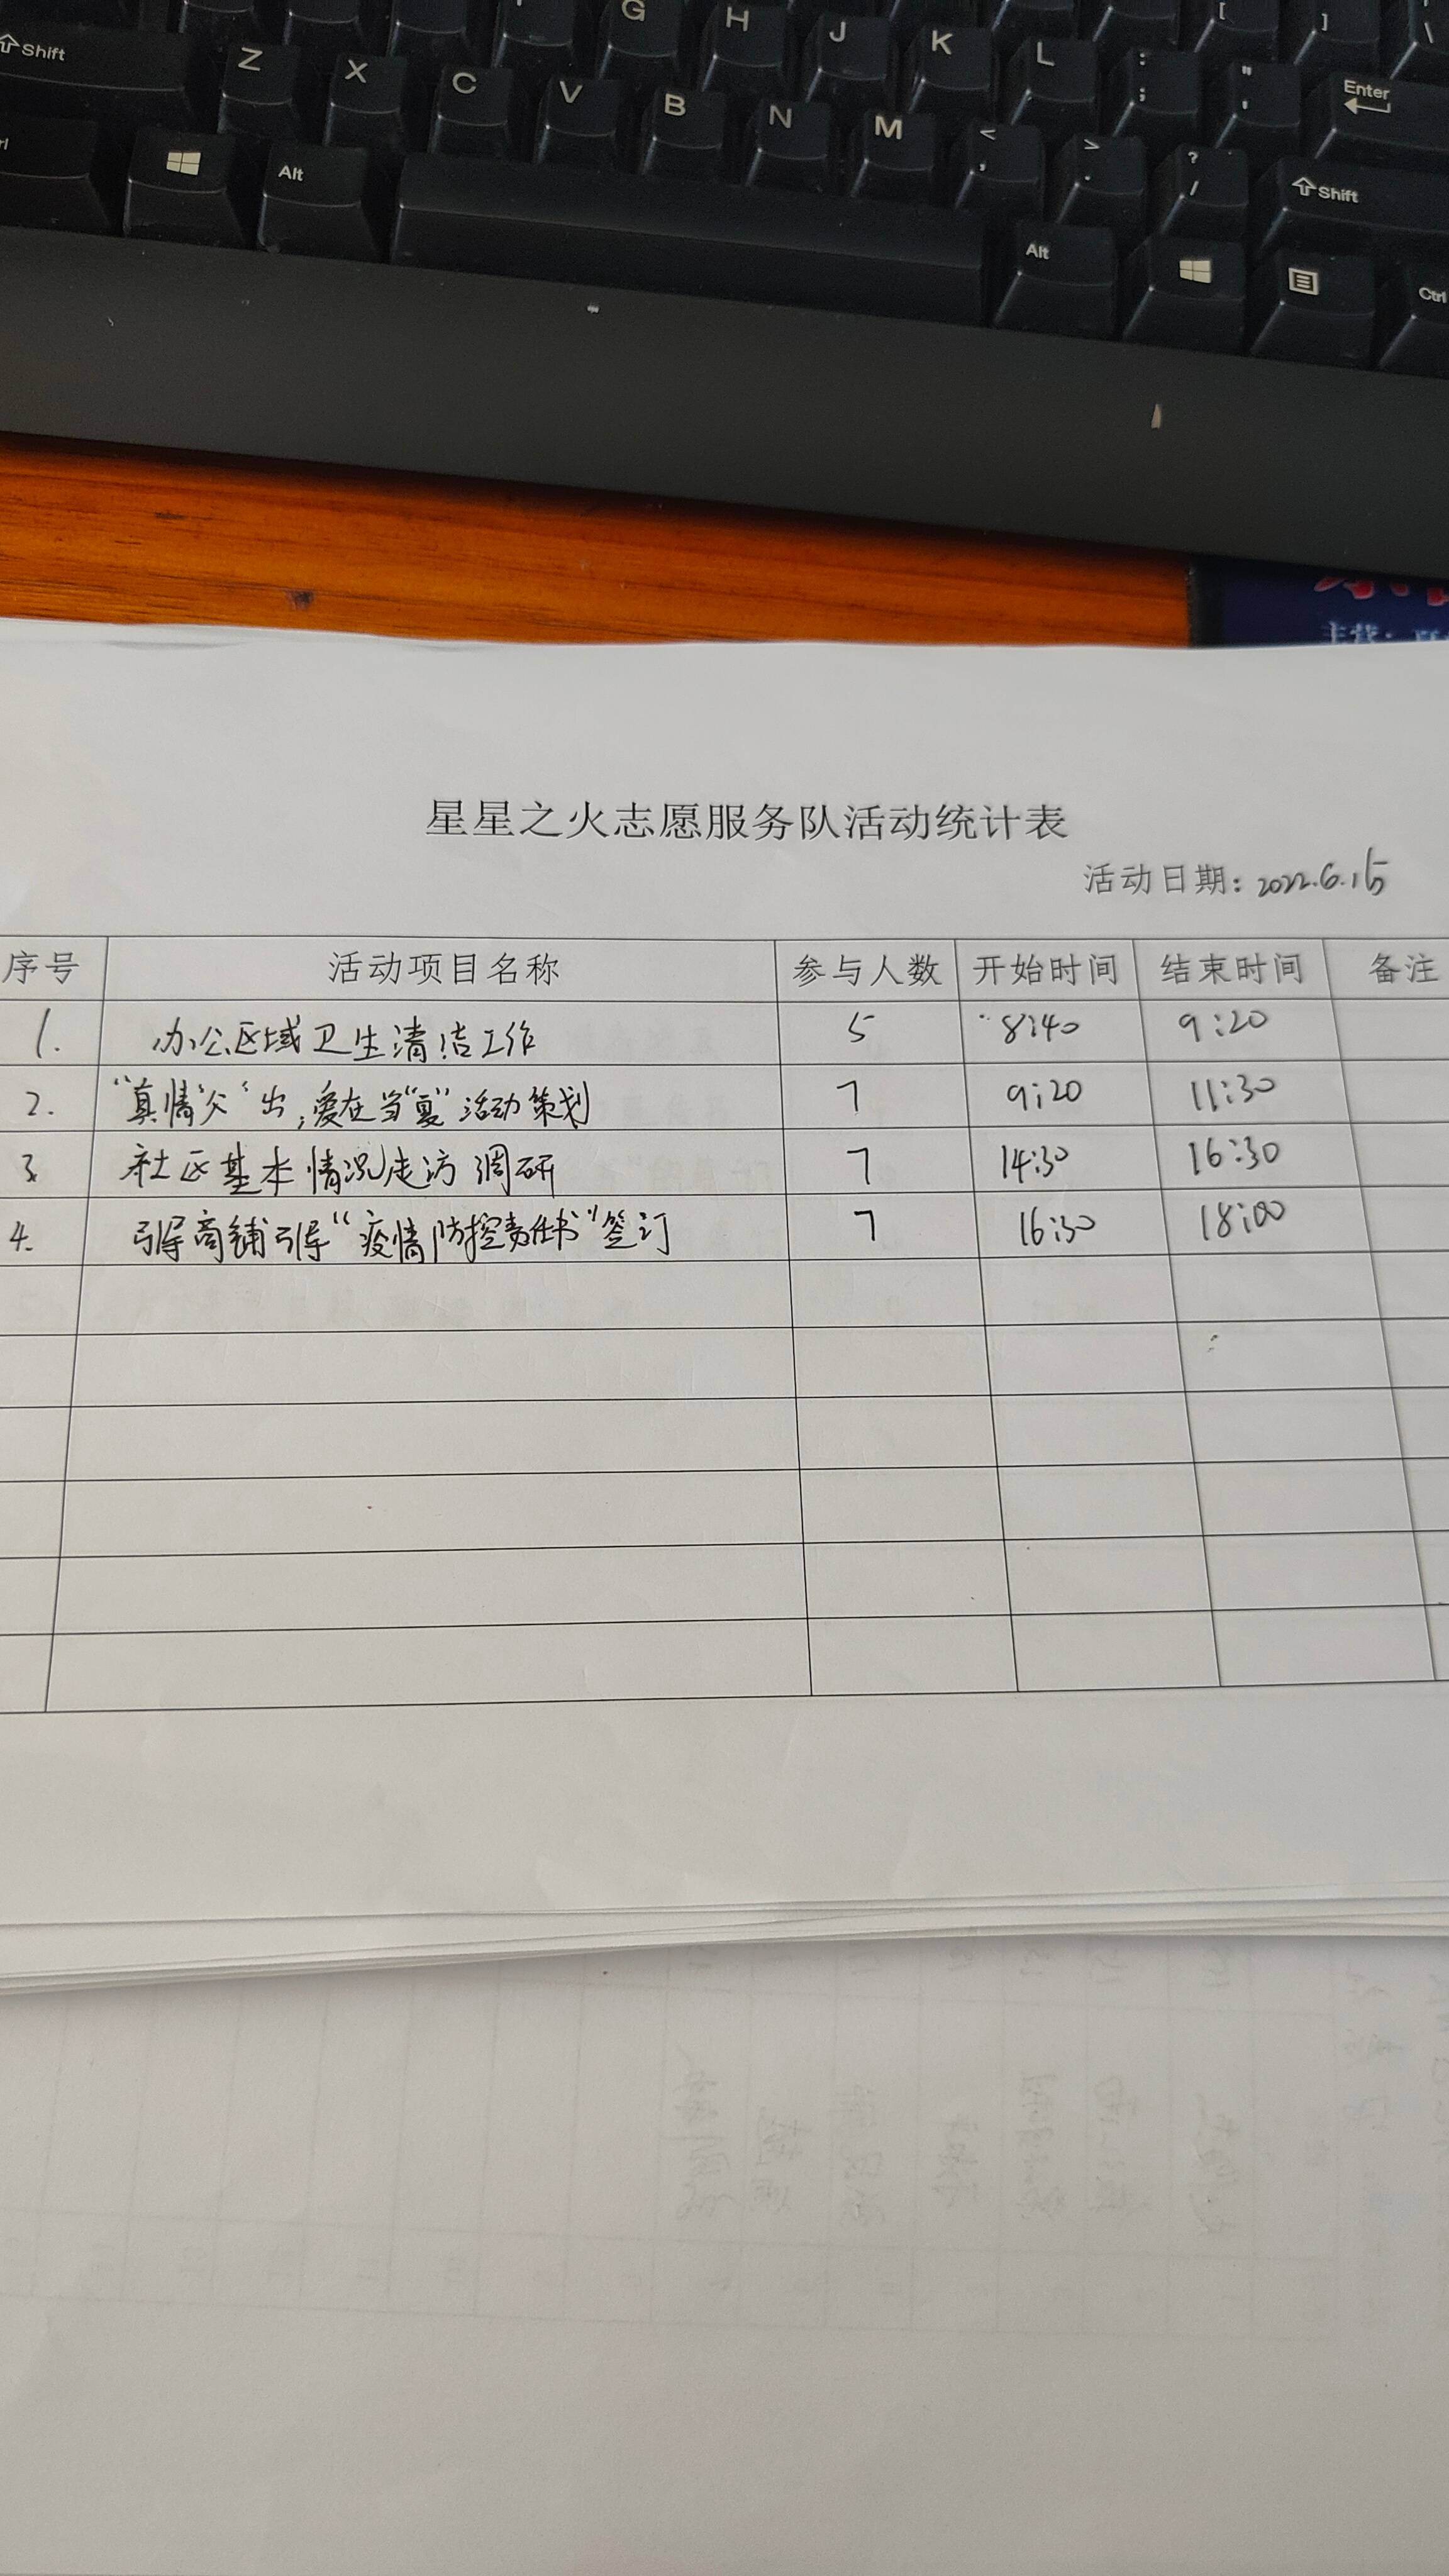 G H J K L : ; " ' [ ] \ Enter
Shift Z X C V B N M < , > . ? / Shift
Alt Alt Ctrl
主营:
星星之火志愿服务队活动统计表
活动日期: 2022.6.15
序号 活动项目名称 参与人数 开始时间 结束时间 备注
1. 办公区域卫生清洁工作 5 8:40 9:20
2. “真情‘父’出,爱在当“夏”活动策划 7 9:20 11:30
3 社区基本情况走访调研 7 14:30 16:30
4. 引导商铺引导“疫情防控责任书”签订 7 16:30 18:00